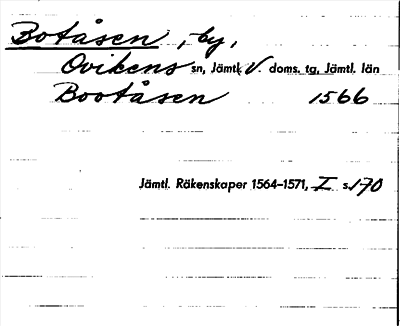 Botåsen, by,
Ovikens sn, Jämtl. V. doms. tg, Jämtl. län
Bootåsen 1566
Jämtl. Räkenskaper 1564–1571, I s. 170